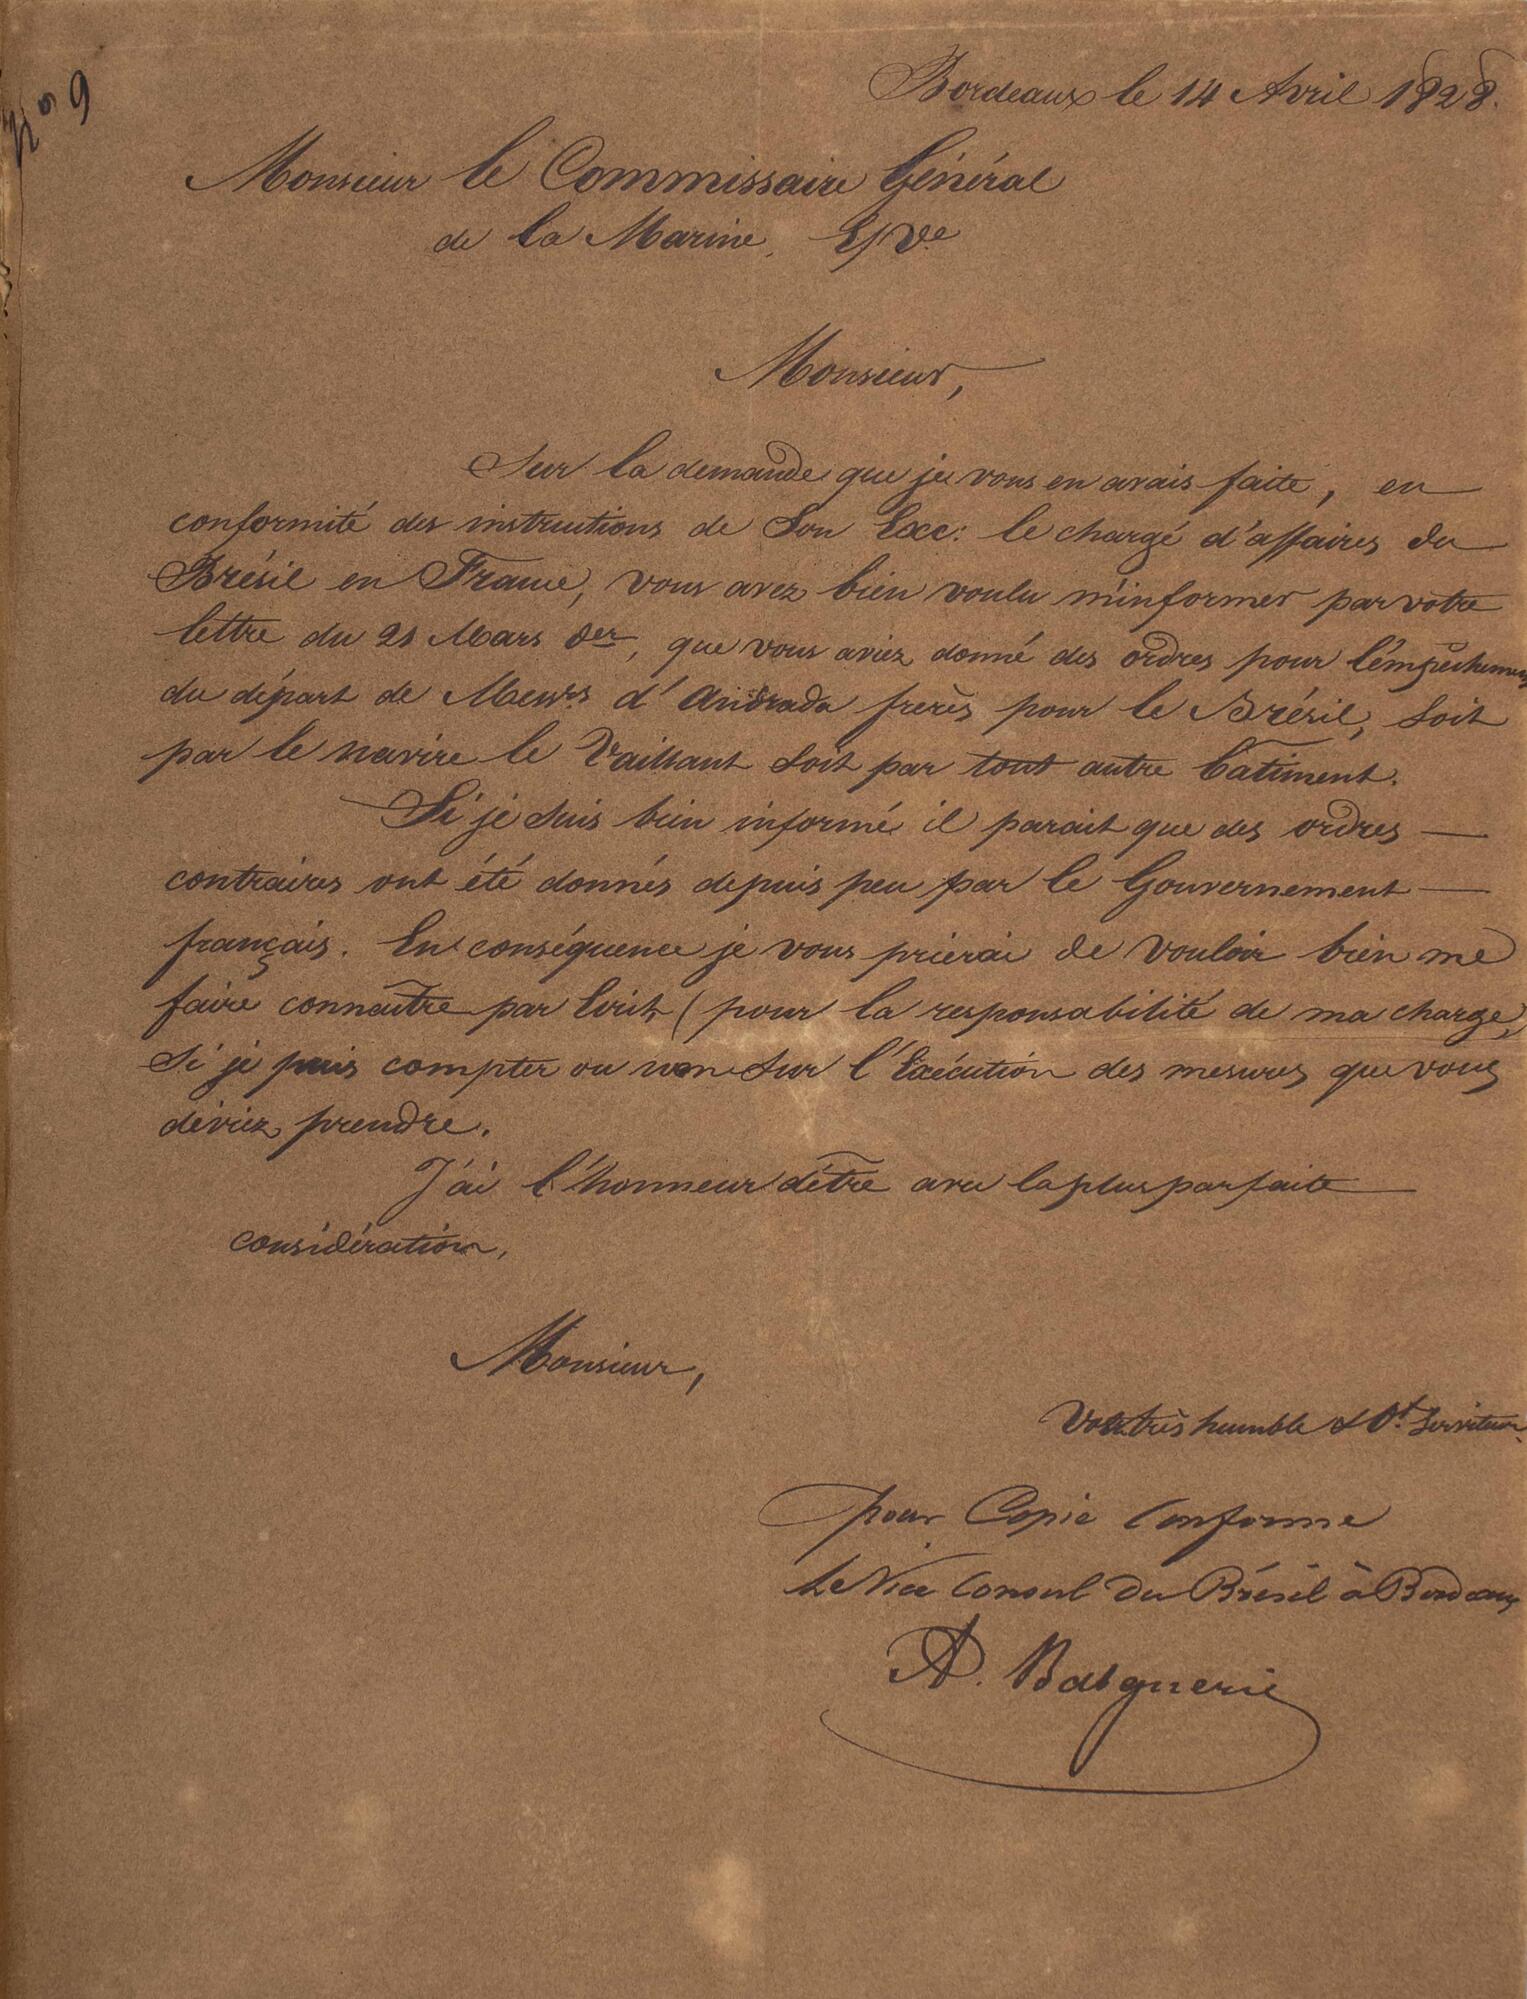 N.º 9
Bordeaux le 14 Avril 1828.
Monsieur le Commissaire Général
de la Marine,
Monsieur,
Sur la demande que je vous en avais faite, en
conformité des instructions de Son Exc: le chargé d'affaires du
Brésil en France, vous avez bien voulu m'informer par votre
lettre du 21 Mars der, que vous aviez donné des ordres pour l'émpêchement
du départ de Messrs d'Andrada frerès pour le Brésil, soit
par le navire le Vaillant soit par tout autre bâtiment.
Si je suis bien informé il parait que des ordres
contraires ont été donnés depuis peu par le Gouvernement
français. En conséquence je vous prierai de vouloir bien me
faire connaître par Ecrit, (pour la responsabilité de ma charge,)
Si je puis compter ou non sur l'Exécution des mesures que vous
dévriez prendre.
J'ai l'honneur d'être avec la plus parfaite
considération,
Monsieur,
Votre très humble & Ot. Serviteur.
pour Copie Conforme
Le Vice Consul du Brésil à Bordeaux
A. Balguerie